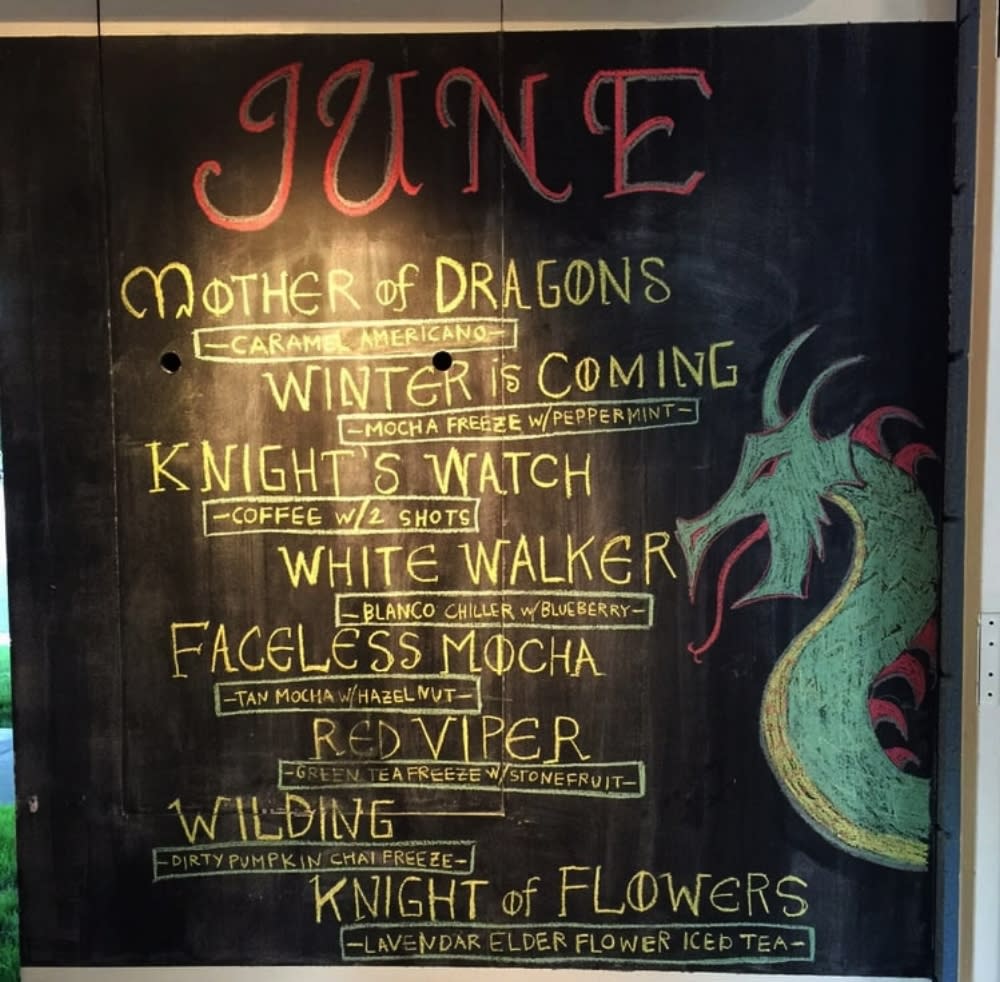 JUNE
MOTHER of DRAGONS
-CARAMEL AMERICANO-
WINTER is COMING
-MOCHA FREEZE W/PEPPERMINT-
KNIGHT'S WATCH
-COFFEE W/2 SHOTS
WHITE WALKER
-BLANCO CHILLER W/BLUEBERRY-
FACELESS MOCHA
-TAN MOCHA W/HAZELNUT-
RED VIPER
-GREEN TEA FREEZE W/STONEFRUIT-
WILDING
-DIRTY PUMPKIN CHAI FREEZE-
KNIGHT of FLOWERS
-LAVENDAR ELDER FLOWER ICED TEA-